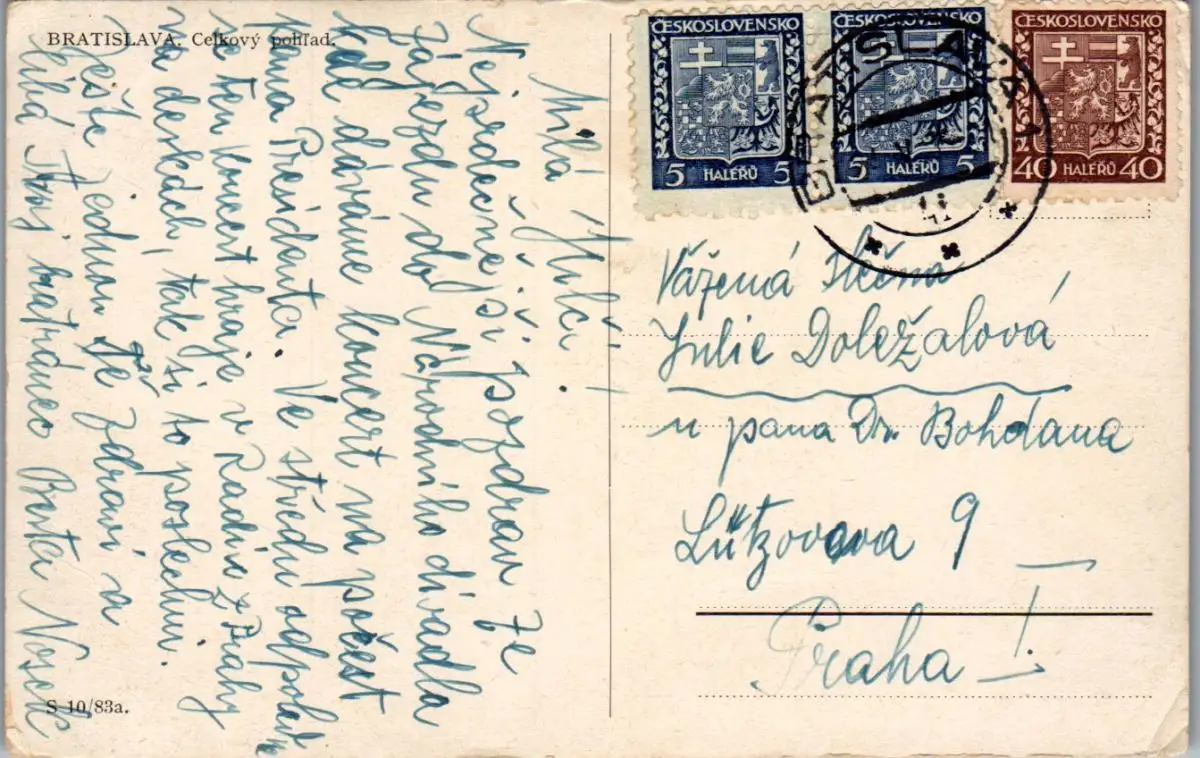 BRATISLAVA. Celkový pohľad.
Milá Julčo!
Nejsrdečnější pozdrav ze
zájezdu do Národního divadla
kde dáváme koncert na počest
pana Presidenta. Ve středu odpoledne
se ten koncert hraje v Radiu z Prahy
na deskách, tak si to poslechni.
Ještě jednou Tě zdraví a
líbá Tvůj bratránec Berta Nosek
S 10/83a.
ČESKOSLOVENSKO
5 HALÉŘŮ 5
ČESKOSLOVENSKO
5 HALÉŘŮ 5
ČESKOSLOVENSKO
40 HALÉŘŮ 40
BRATISLAVA 1
Vážená slečna
Julie Doležalová
u pana Dr. Bohdana
Lützovova 9
Praha I.